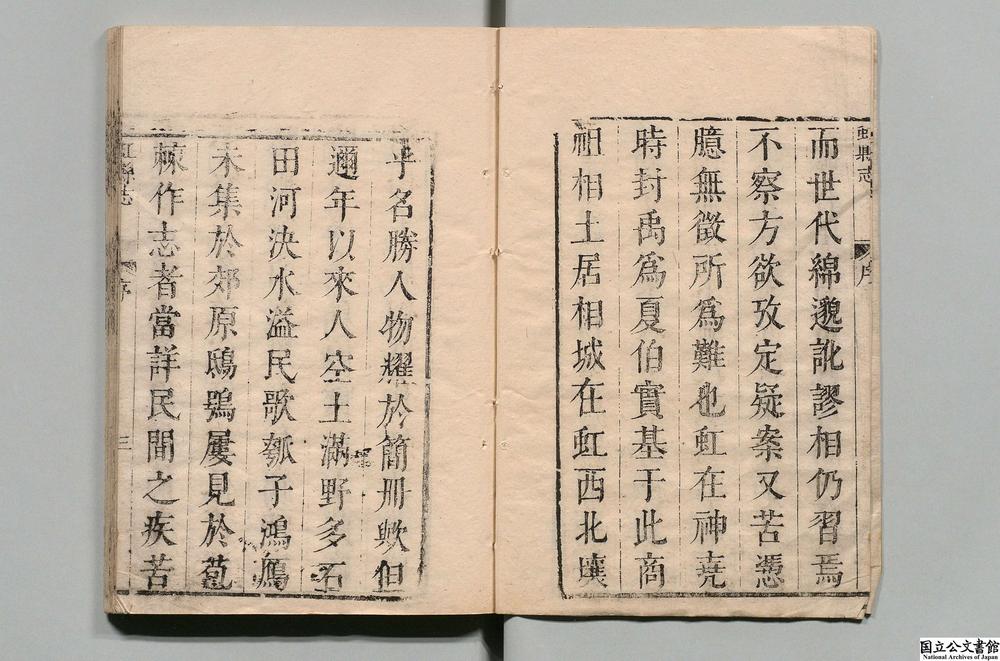 虹縣志
序
而世代綿邈訛謬相仍習焉
不察方欲攷定疑案又苦憑
臆無徵所爲難也虹在神堯
時封禹爲夏伯實基于此商
祖相土居相城在虹西北壤
乎名勝人物耀於簡册歟但
邇年以來人空土滿野多石
田河決水溢民歌瓠子鴻鴈
未集於郊原鴟鴞屢見於苞
棘作志者當詳民間之疾苦
虹縣志
序
三
国立公文書館
National Archives of Japan